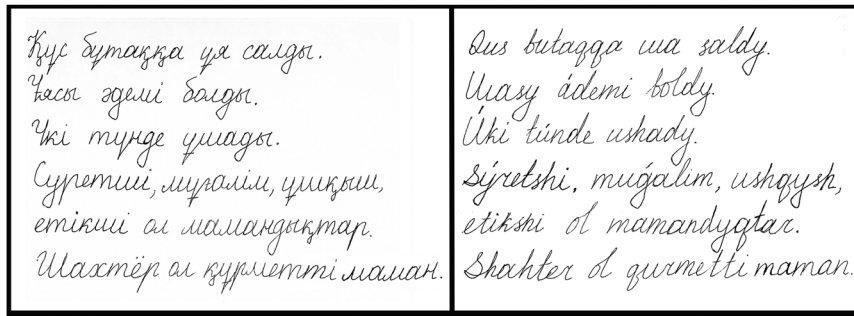 Құс бұтаққа ұя салды.
Ұясы әдемі болды.
Үкі түнде ұшады.
Суретші, мұғалім, ұшқыш,
етікші ол мамандықтар.
Шахтёр ол құрметті маман.
Qus butaqqa uıa saldy.
Uıasy ádemi boldy.
Úki túnde ushady.
Sýretshi, muǵalim, ushqysh,
etikshi ol mamandyqtar.
Shahter ol qurmetti maman.